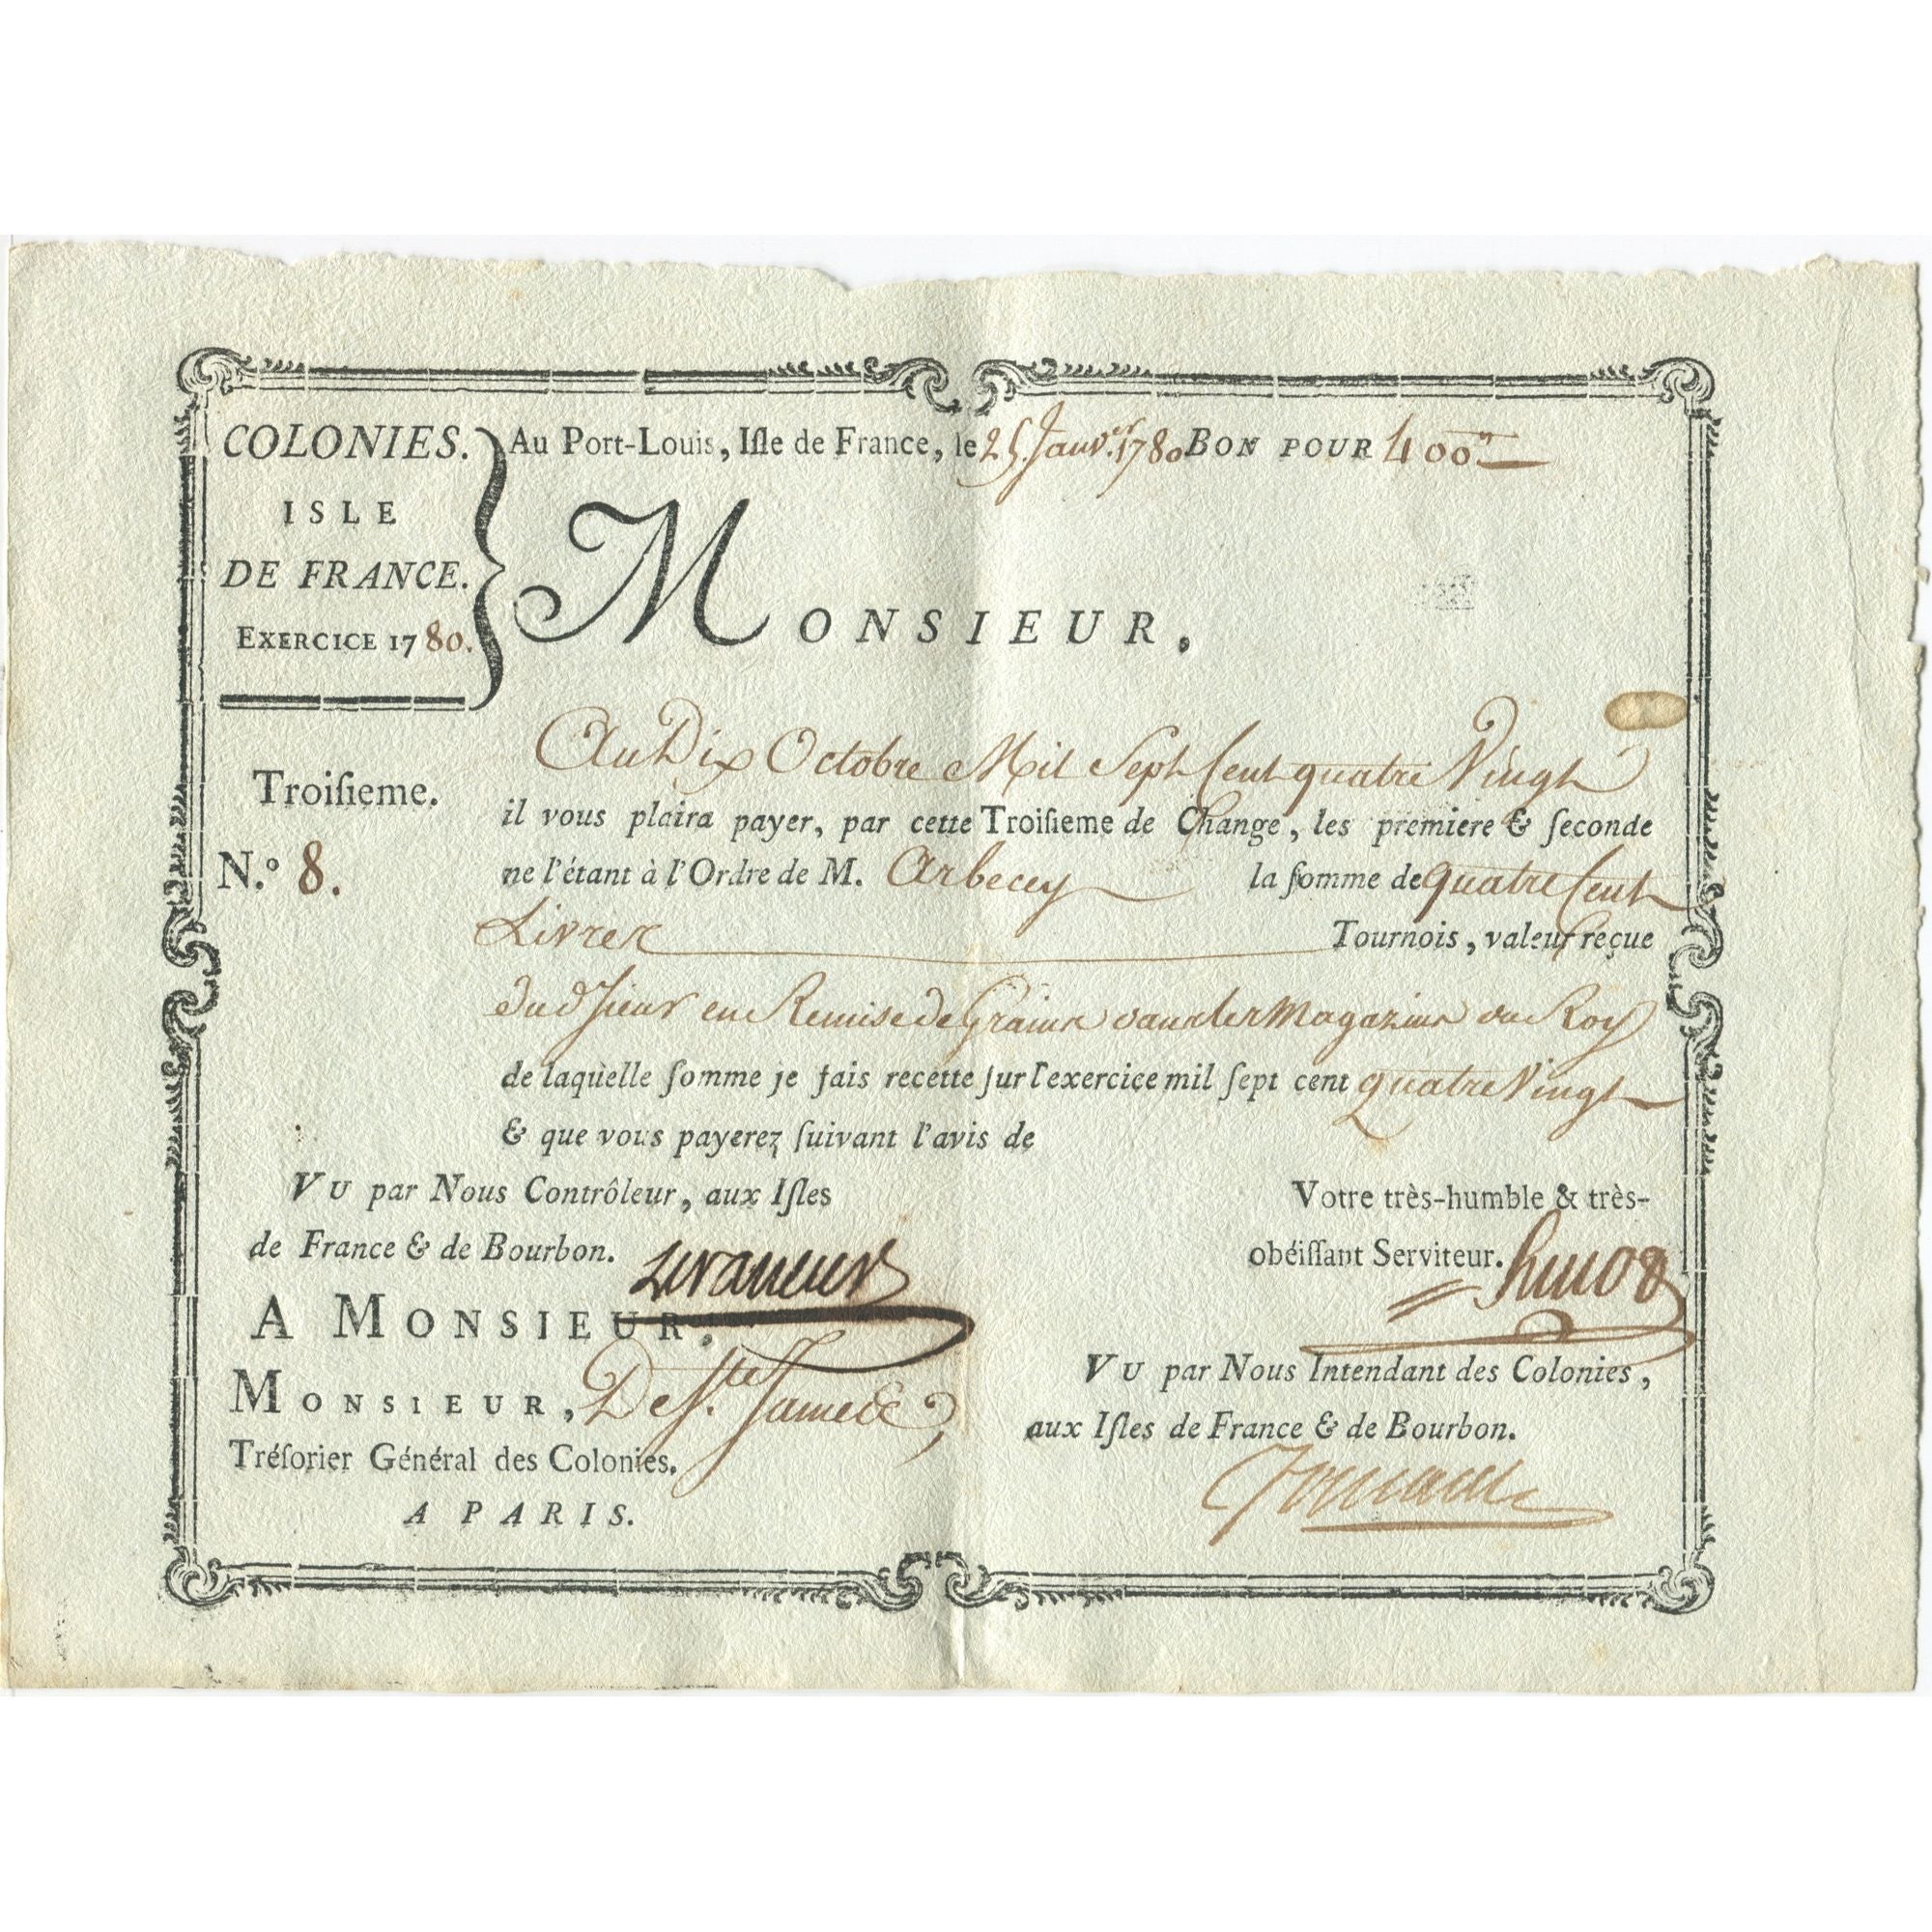 COLONIES.
ISLE
DE FRANCE.
EXERCICE 1780.
Au Port-Louis, Iſle de France, le 25 Janv.er 1780 BON POUR 400
MONSIEUR,
Troiſieme.
N.° 8.
Au Dix Octobre Mil Sept Cent quatre Vingt
il vous plaira payer, par cette Troiſieme de Change, les premiere & ſeconde
ne l'étant à l'Ordre de M. Arbecey la ſomme de quatre Cent
Livres Tournois, valeur reçue
dud Sieur en Remise de Grains dans les Magazins du Roy
de laquelle ſomme je fais recette ſur l'exercice mil ſept cent quatre Vingt
& que vous payerez ſuivant l'avis de
VU par Nous Contrôleur, aux Iſles
de France & de Bourbon.
Votre très-humble & très-
obéiſſant Serviteur.
A MONSIEUR,
MONSIEUR, De S.te Jamese,
Tréſorier Général des Colonies,
A PARIS.
VU par Nous Intendant des Colonies,
aux Iſles de France & de Bourbon.